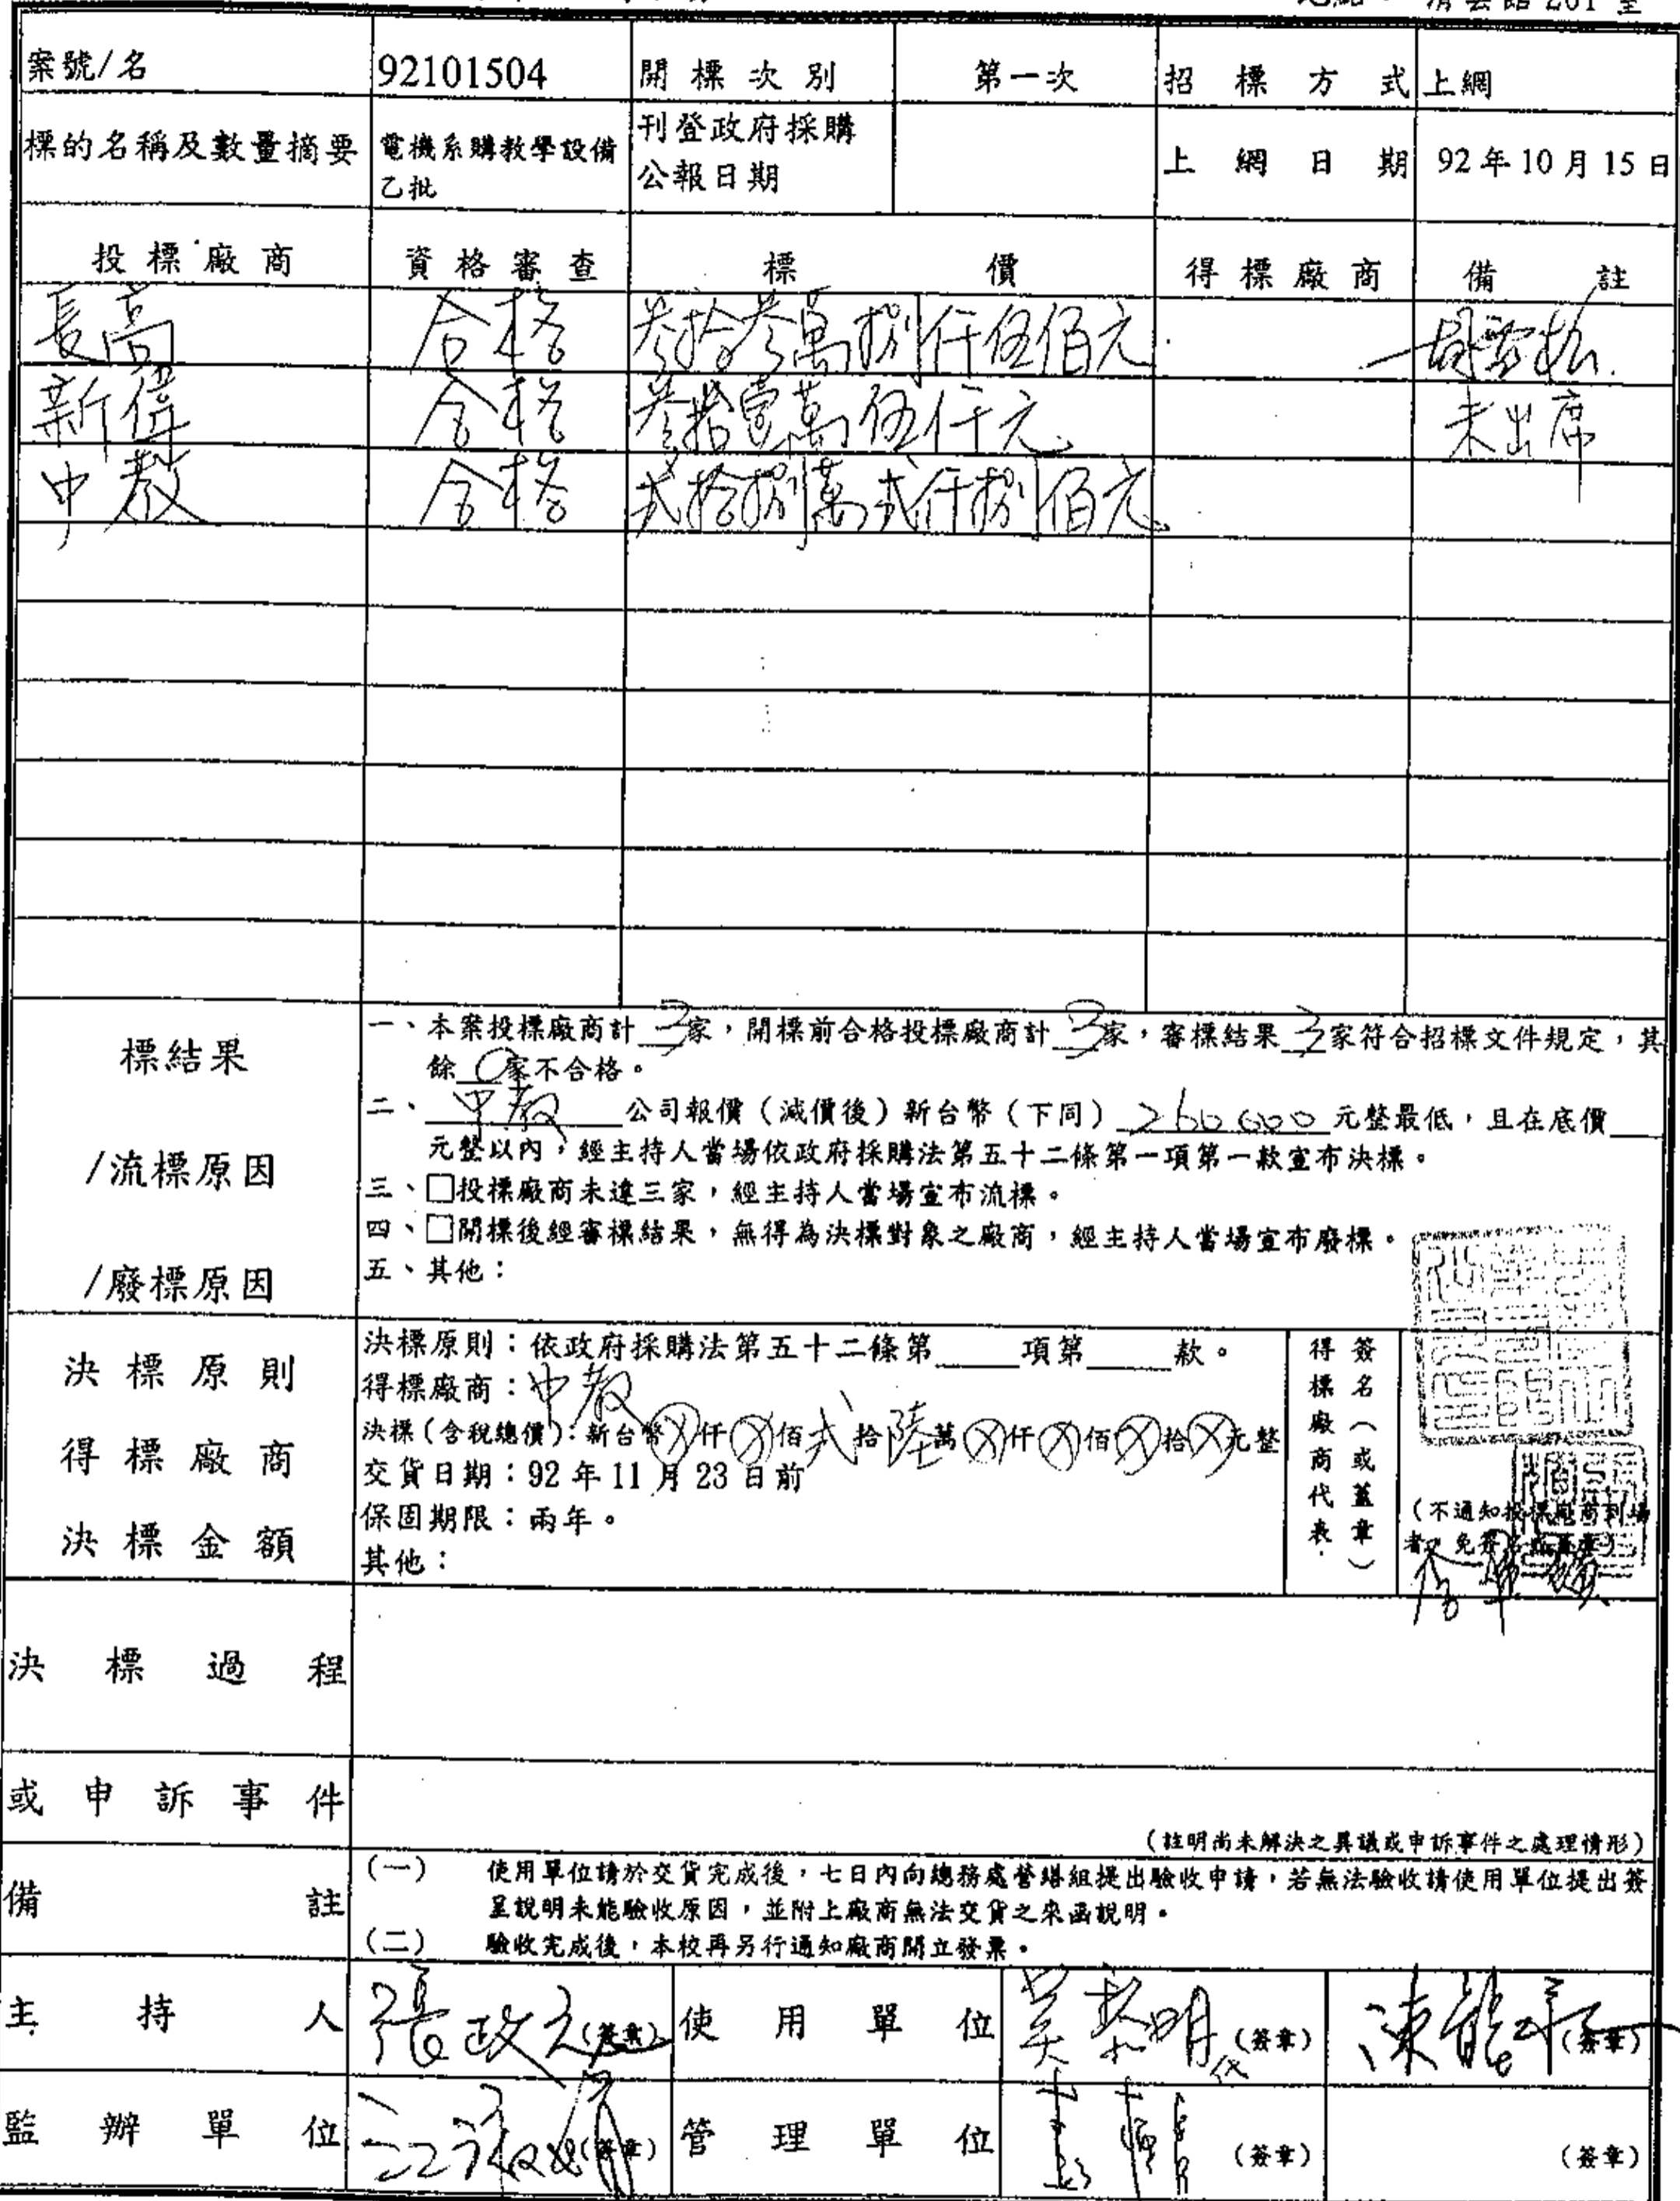 清雲館 201 室
案號/名 92101504 開標次別 第一次 招標方式 上網
標的名稱及數量摘要 電機系購教學設備乙批 刊登政府採購公報日期 上網日期 92年10月15日
投標廠商 資格審查 標價 得標廠商 備註
長高 合格 叁拾叁萬捌仟伍佰元
新偉 合格 叁拾壹萬伍仟元 未出席
中教 合格 弍拾捌萬弍仟捌佰元
標結果
/流標原因
/廢標原因
一、本案投標廠商計 3 家,開標前合格投標廠商計 3 家,審標結果 3 家符合招標文件規定,其
餘 0 家不合格。
二、 中教 公司報價(減價後)新台幣(下同) 260000 元整最低,且在底價
元整以內,經主持人當場依政府採購法第五十二條第一項第一款宣布決標。
三、□投標廠商未達三家,經主持人當場宣布流標。
四、□開標後經審標結果,無得為決標對象之廠商,經主持人當場宣布廢標。
五、其他:
決標原則
得標廠商
決標金額
決標原則:依政府採購法第五十二條第____項第____款。
得標廠商:中教
決標(含稅總價):新台幣ⓧ仟ⓧ佰弍拾陸萬ⓧ仟ⓧ佰ⓧ拾ⓧ元整
交貨日期:92年11月23日前
保固期限:兩年。
其他:
得標廠商代表
簽名(或蓋章)
(不通知投標廠商到場
者,免簽名或蓋章)
決標過程
或申訴事件
(註明尚未解決之異議或申訴事件之處理情形)
備註
(一) 使用單位請於交貨完成後,七日內向總務處營繕組提出驗收申請,若無法驗收請使用單位提出簽
呈說明未能驗收原因,並附上廠商無法交貨之來函說明。
(二) 驗收完成後,本校再另行通知廠商開立發票。
主持人 張政 (簽章) 使用單位 明代 (簽章) 陳龍 (簽章)
監辦單位 (簽章) 管理單位 (簽章) (簽章)